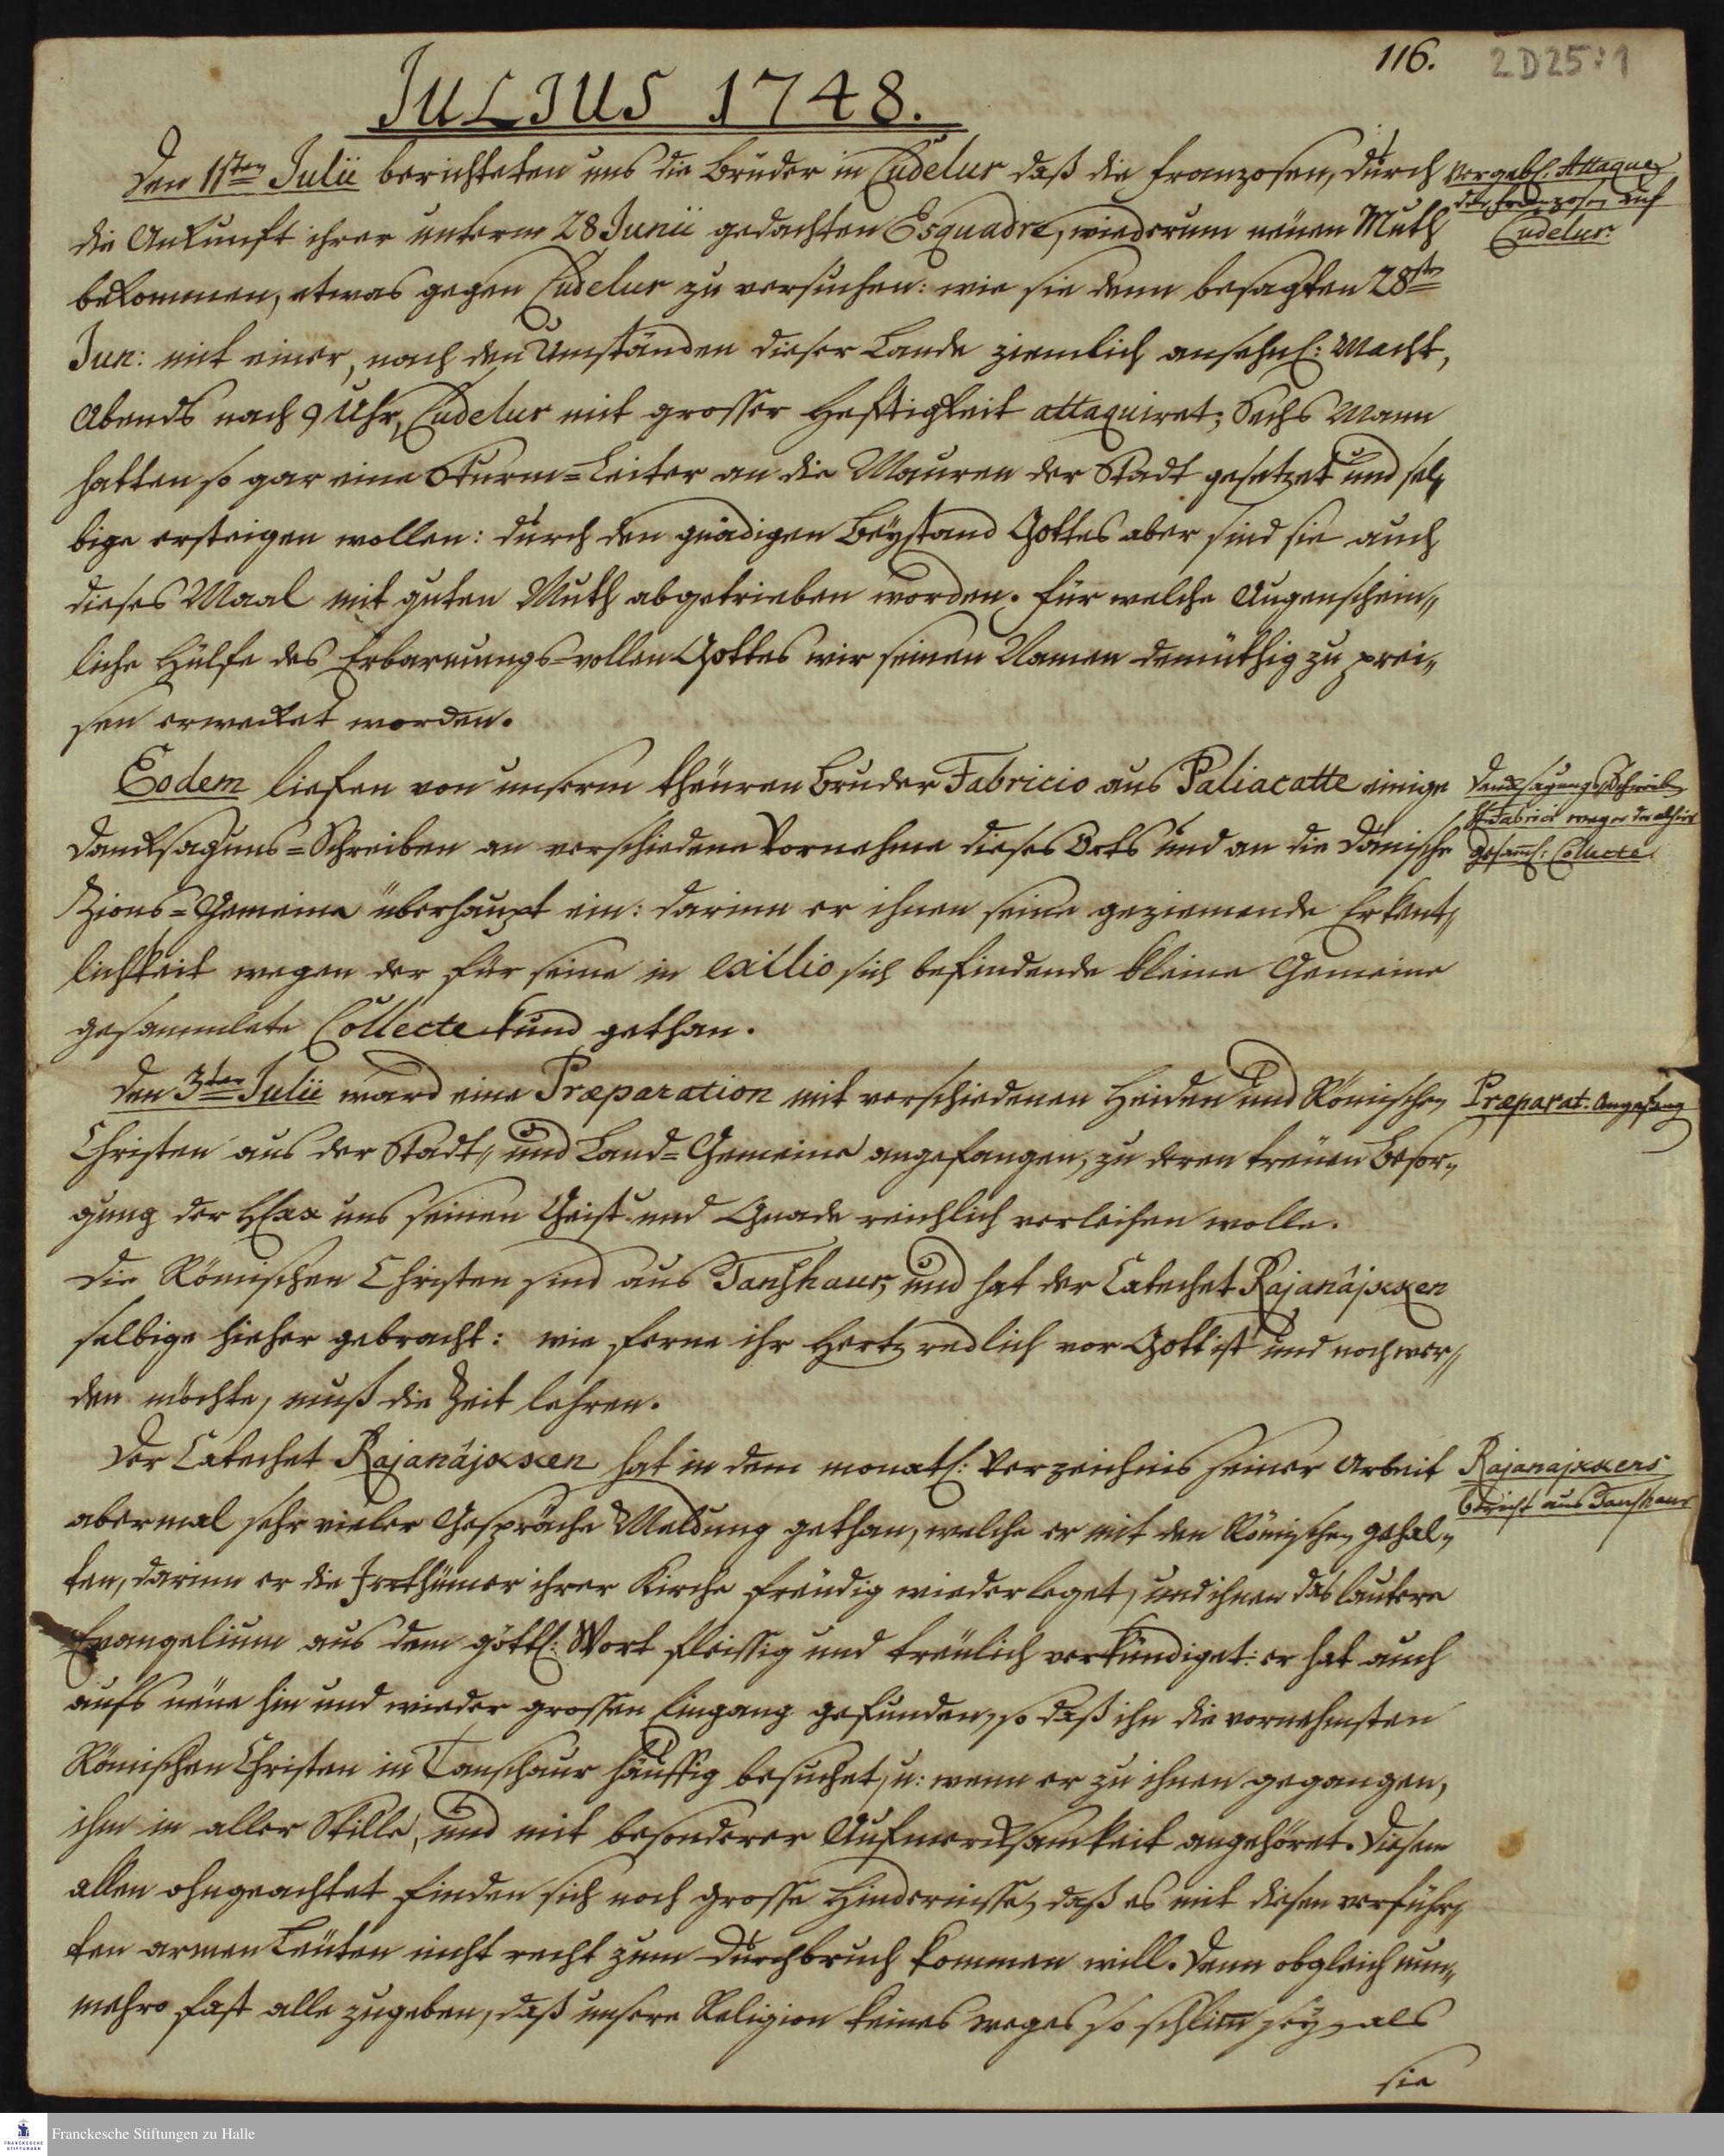 116.
2D25:1
JULIUS 1748.
Den 1sten Julii berichteten uns die Brüder in Cudelur daß die Franzosen, durch
Vergebl. Attaque
der Franzosen auf
Cudelur.
die Ankunft ihrer unterm 28 Junii gedachten Esquadre, wiederum neuen Muth
bekommen, etwas gegen Cudelur zu versuchen: wie sie denn besagten 28sten
Jun: mit einer, nach den Umständen dieser Lande ziemlich ansehnl: Macht,
Abends nach 9 Uhr, Cudelur mit grosser Heftigkeit attaquiret; Sechs Mann
hatten so gar eine Sturm=Leiter an die Mauren der Stadt gesetzet und sel„
bige ersteigen wollen: durch den gnädigen Beystand Gottes aber sind sie auch
dieses Maal mit guten Muth abgetrieben worden. für welche Augenschein„
liche Hülfe des Erbarmungs=vollen Gottes wir seinen Namen demüthig zu prei„
sen erwecket worden.
Eodem liefen von unserm theuren Bruder Fabricio aus Paliacatte einige
Dancksagungs Schreib
H. Fabricii wegen der alhier
gesaml: Collecte
Dancksaguns=Schreiben an verschiedene Vornehme dieses Orts und an die Dänische
Zions=Gemeine überhaupt ein: darinn er ihnen seine geziemende Erkent„
lichkeit wegen der für seine in exilio sich befindende kleine Gemeine
gesammlete Collecte kund gethan.
Den 3ten Julii ward eine Præparation mit verschiedenen Heiden und Römischen
Præparat. Angefang
Christen aus der Stadt„ und Land=Gemeine angefangen, zu deren treuen Besor„
gung der HErr uns seinen Geist und Gnade reichlich verleihen wolle.
Die Römischen Christen sind aus Tanshaur, und hat der Catechet Rajanâjxxen
selbige hieher gebracht: wie ferne ihr Hertz redlich vor Gott ist und noch wer„
den möchte, muß die Zeit lehren.
Der Catechet Rajanâjxxen hat in dem monatl: Verzeichnis seiner Arbeit
Rajanajxxens
bericht aus Tanshaur
abermal sehr vieler Gespräche Meldung gethan, welche er mit den Römischen gehal„
ten, darinn er die Irrthümer ihrer Kirche freudig wiederleget, und ihnen das lautere
Evangelium aus dem göttl: Wort fleissig und treulich verkündiget: er hat auch
aufs neue hin und wieder grossen Eingang gefunden, so daß ihn die vornehmsten
Römischen Christen in Tanschaur häuffig besuchet, u: wenn er zu ihnen gegangen,
ihm in aller Stille, und mit besonderer Aufmercksamkeit angehöret. Diesem
allen ohngeachtet finden sich noch grosse Hindernisse, daß es mit diesen verführ„
ten armen Leuten nicht recht zum Durchbruch kommen will. Denn obgleich nun„
mehro fast alle zugeben, daß unsere Religion keines weges so schlim̅ sey, als
sie
FRANCKESCHE STIFTUNGEN
Franckesche Stiftungen zu Halle